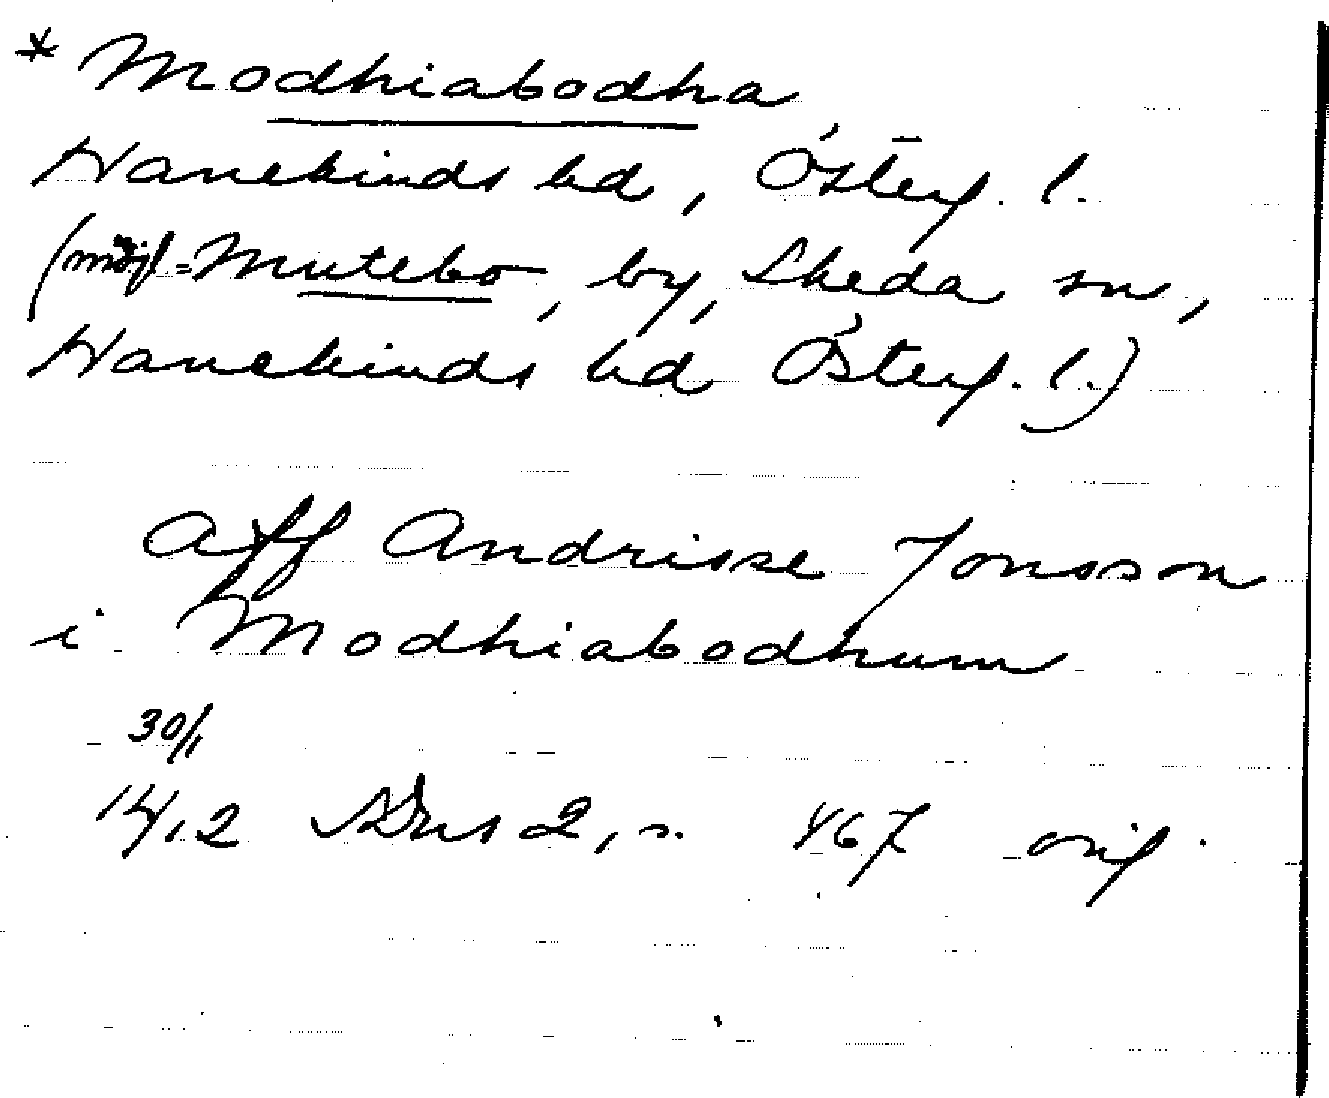 * Modhiabodha
Hanekinds hd, Österg. l.
(möjl = Mutebo, by, Skeda sn,
Hanekinds hd Österg. l.)
Aff Andrisse Jonsson
i Modhiabodhum
30/1
1412 SDns 2, s. 467 orig.